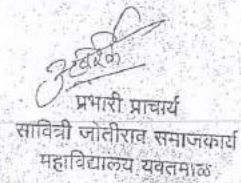 प्रभारी प्राचार्य
सावित्री जोतीराव समाजकार्य
महाविद्यालय यवतमाळ